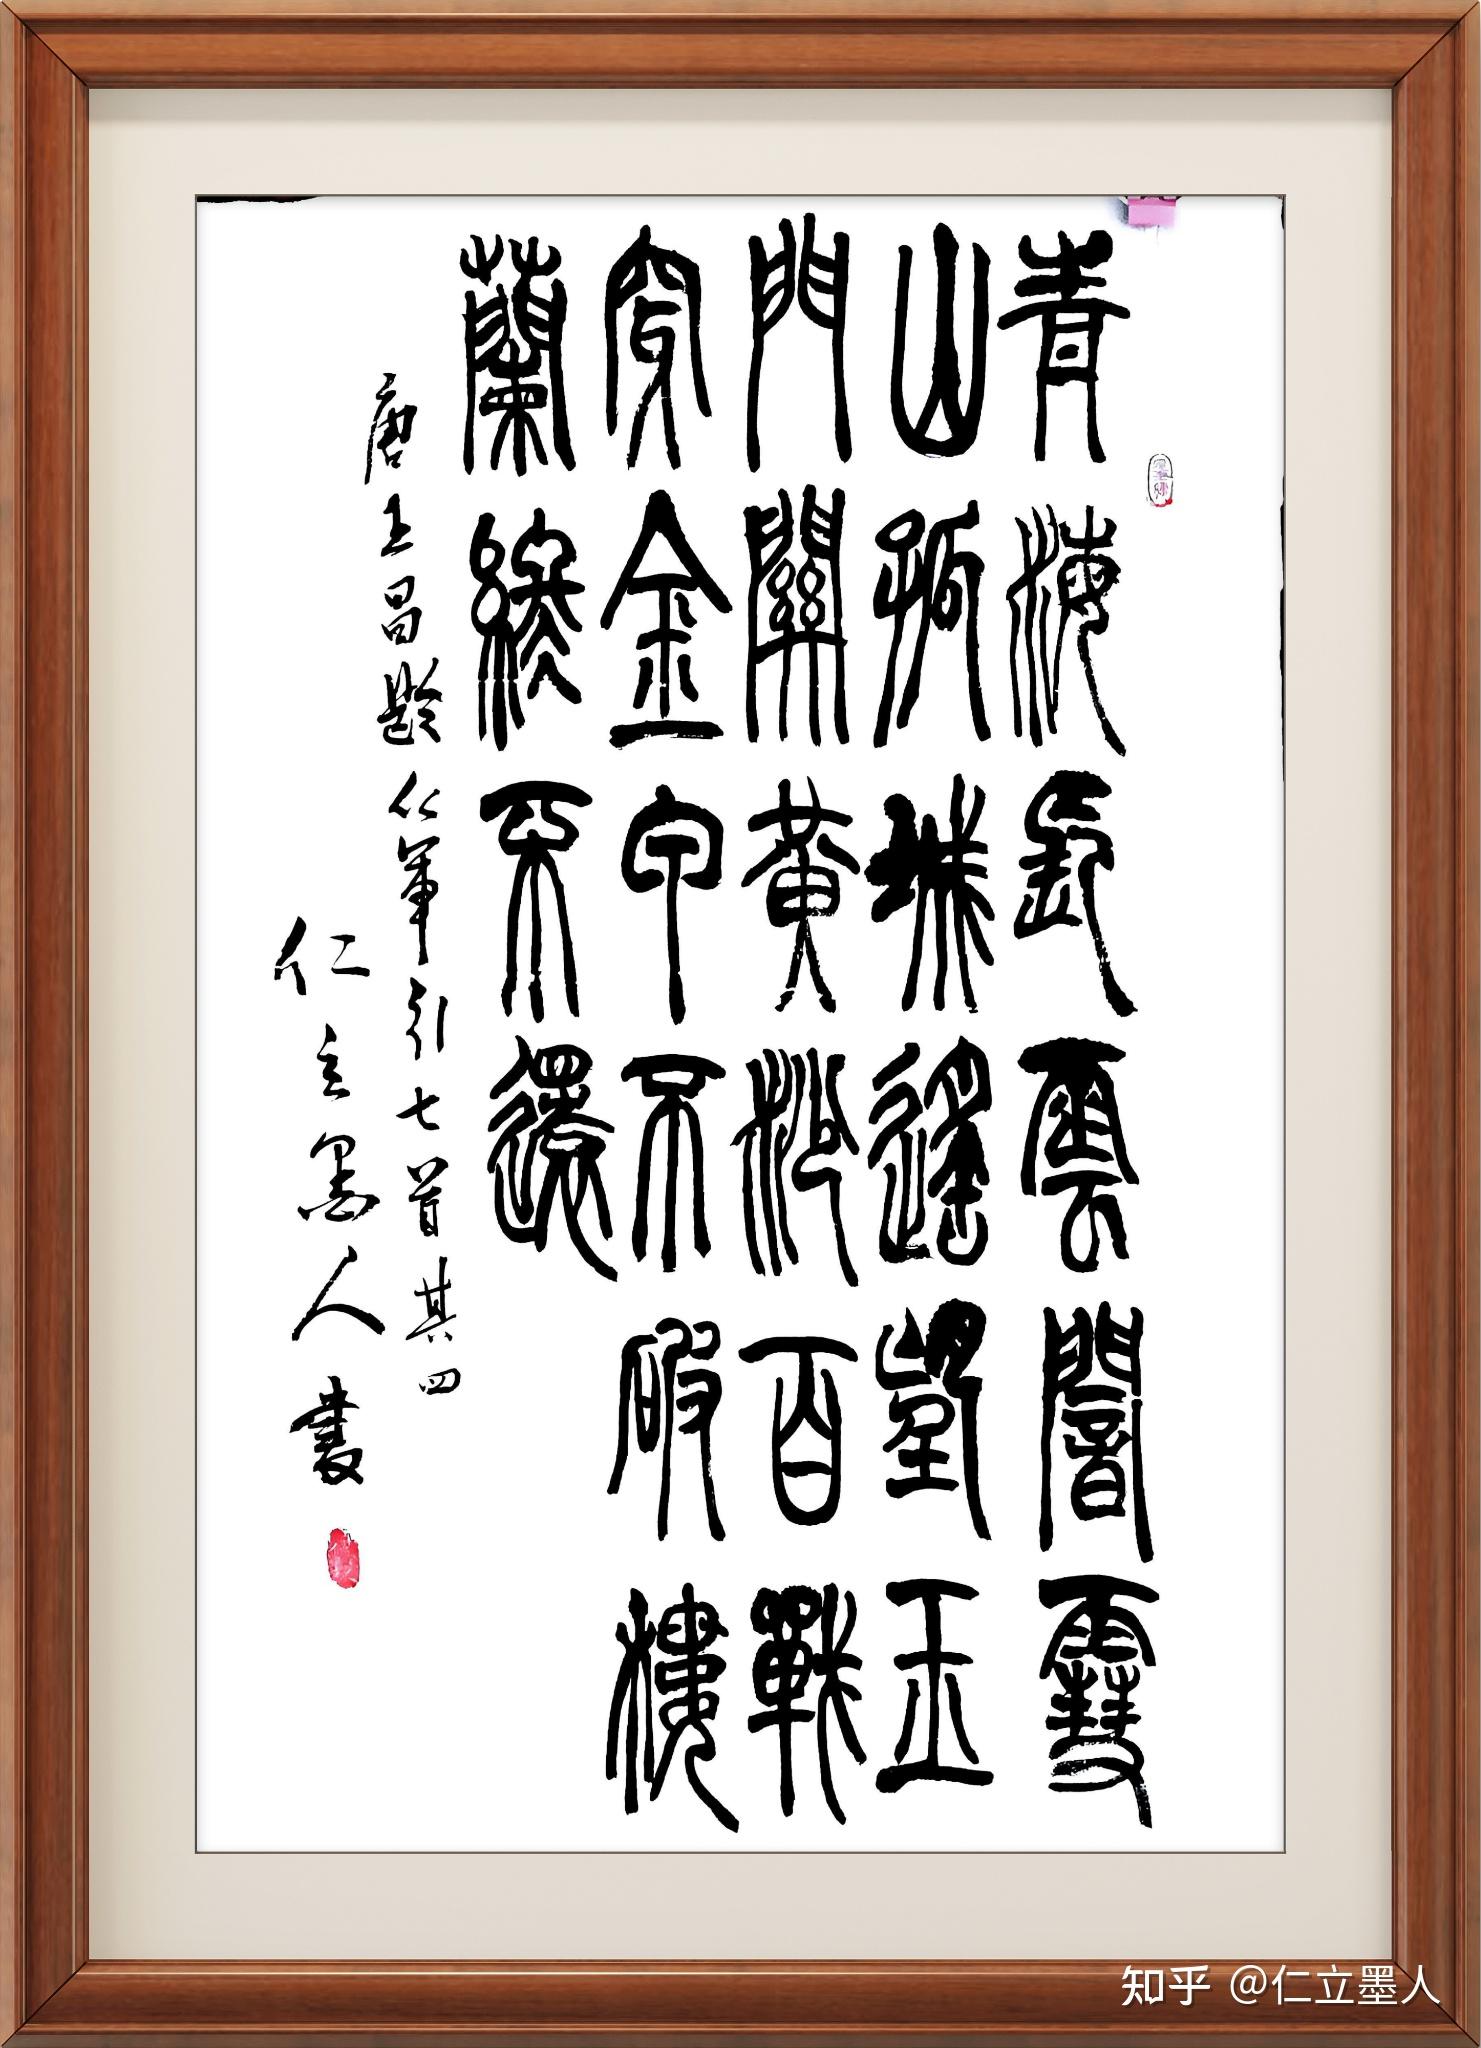 青海長雲闇雪
山孤城遙望玉
門關黃沙百戰
穿金甲不破樓
蘭終不還
唐王昌齡从軍行七首其四
仁立墨人書
知乎 @仁立墨人